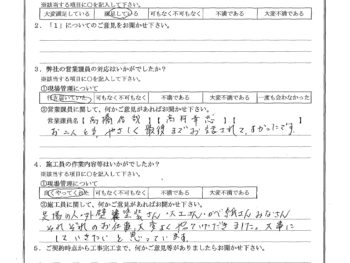 ※該当する項目に○を記入して下さい。
大変満足している 満足している 可もなく不可もなく 不満である 大変不満である
2．「1」についてのご意見をお聞かせ下さい。
3．弊社の営業課員の対応はいかがでしたか？
※該当する項目に○を記入して下さい。
①現場管理について
良く動いていた 可もなく不可もなく 不満である 大変不満である 一度も会わなかった
②営業課員に関して、何かご意見があればお聞かせ下さい。
営業課員名【
お二人とも、やさしく最後までお話されて、すがすがしいです。
4．施工員の作業内容等はいかがでしたか？
※該当する項目に○を記入して下さい。
①現場管理について
良くやってくれた 可もなく不可もなく 不満である 大変不満である
②施工員に関して、何かご意見があればお聞かせ下さい。
足場の人・外壁塗装さん・大工さん・みなさん
それぞれのお仕事、大変よくやっていただきました。大事に
していきたいと思っています。
5．ご契約時点から工事完工まで、何かご意見等がありましたらお聞かせ下さい。